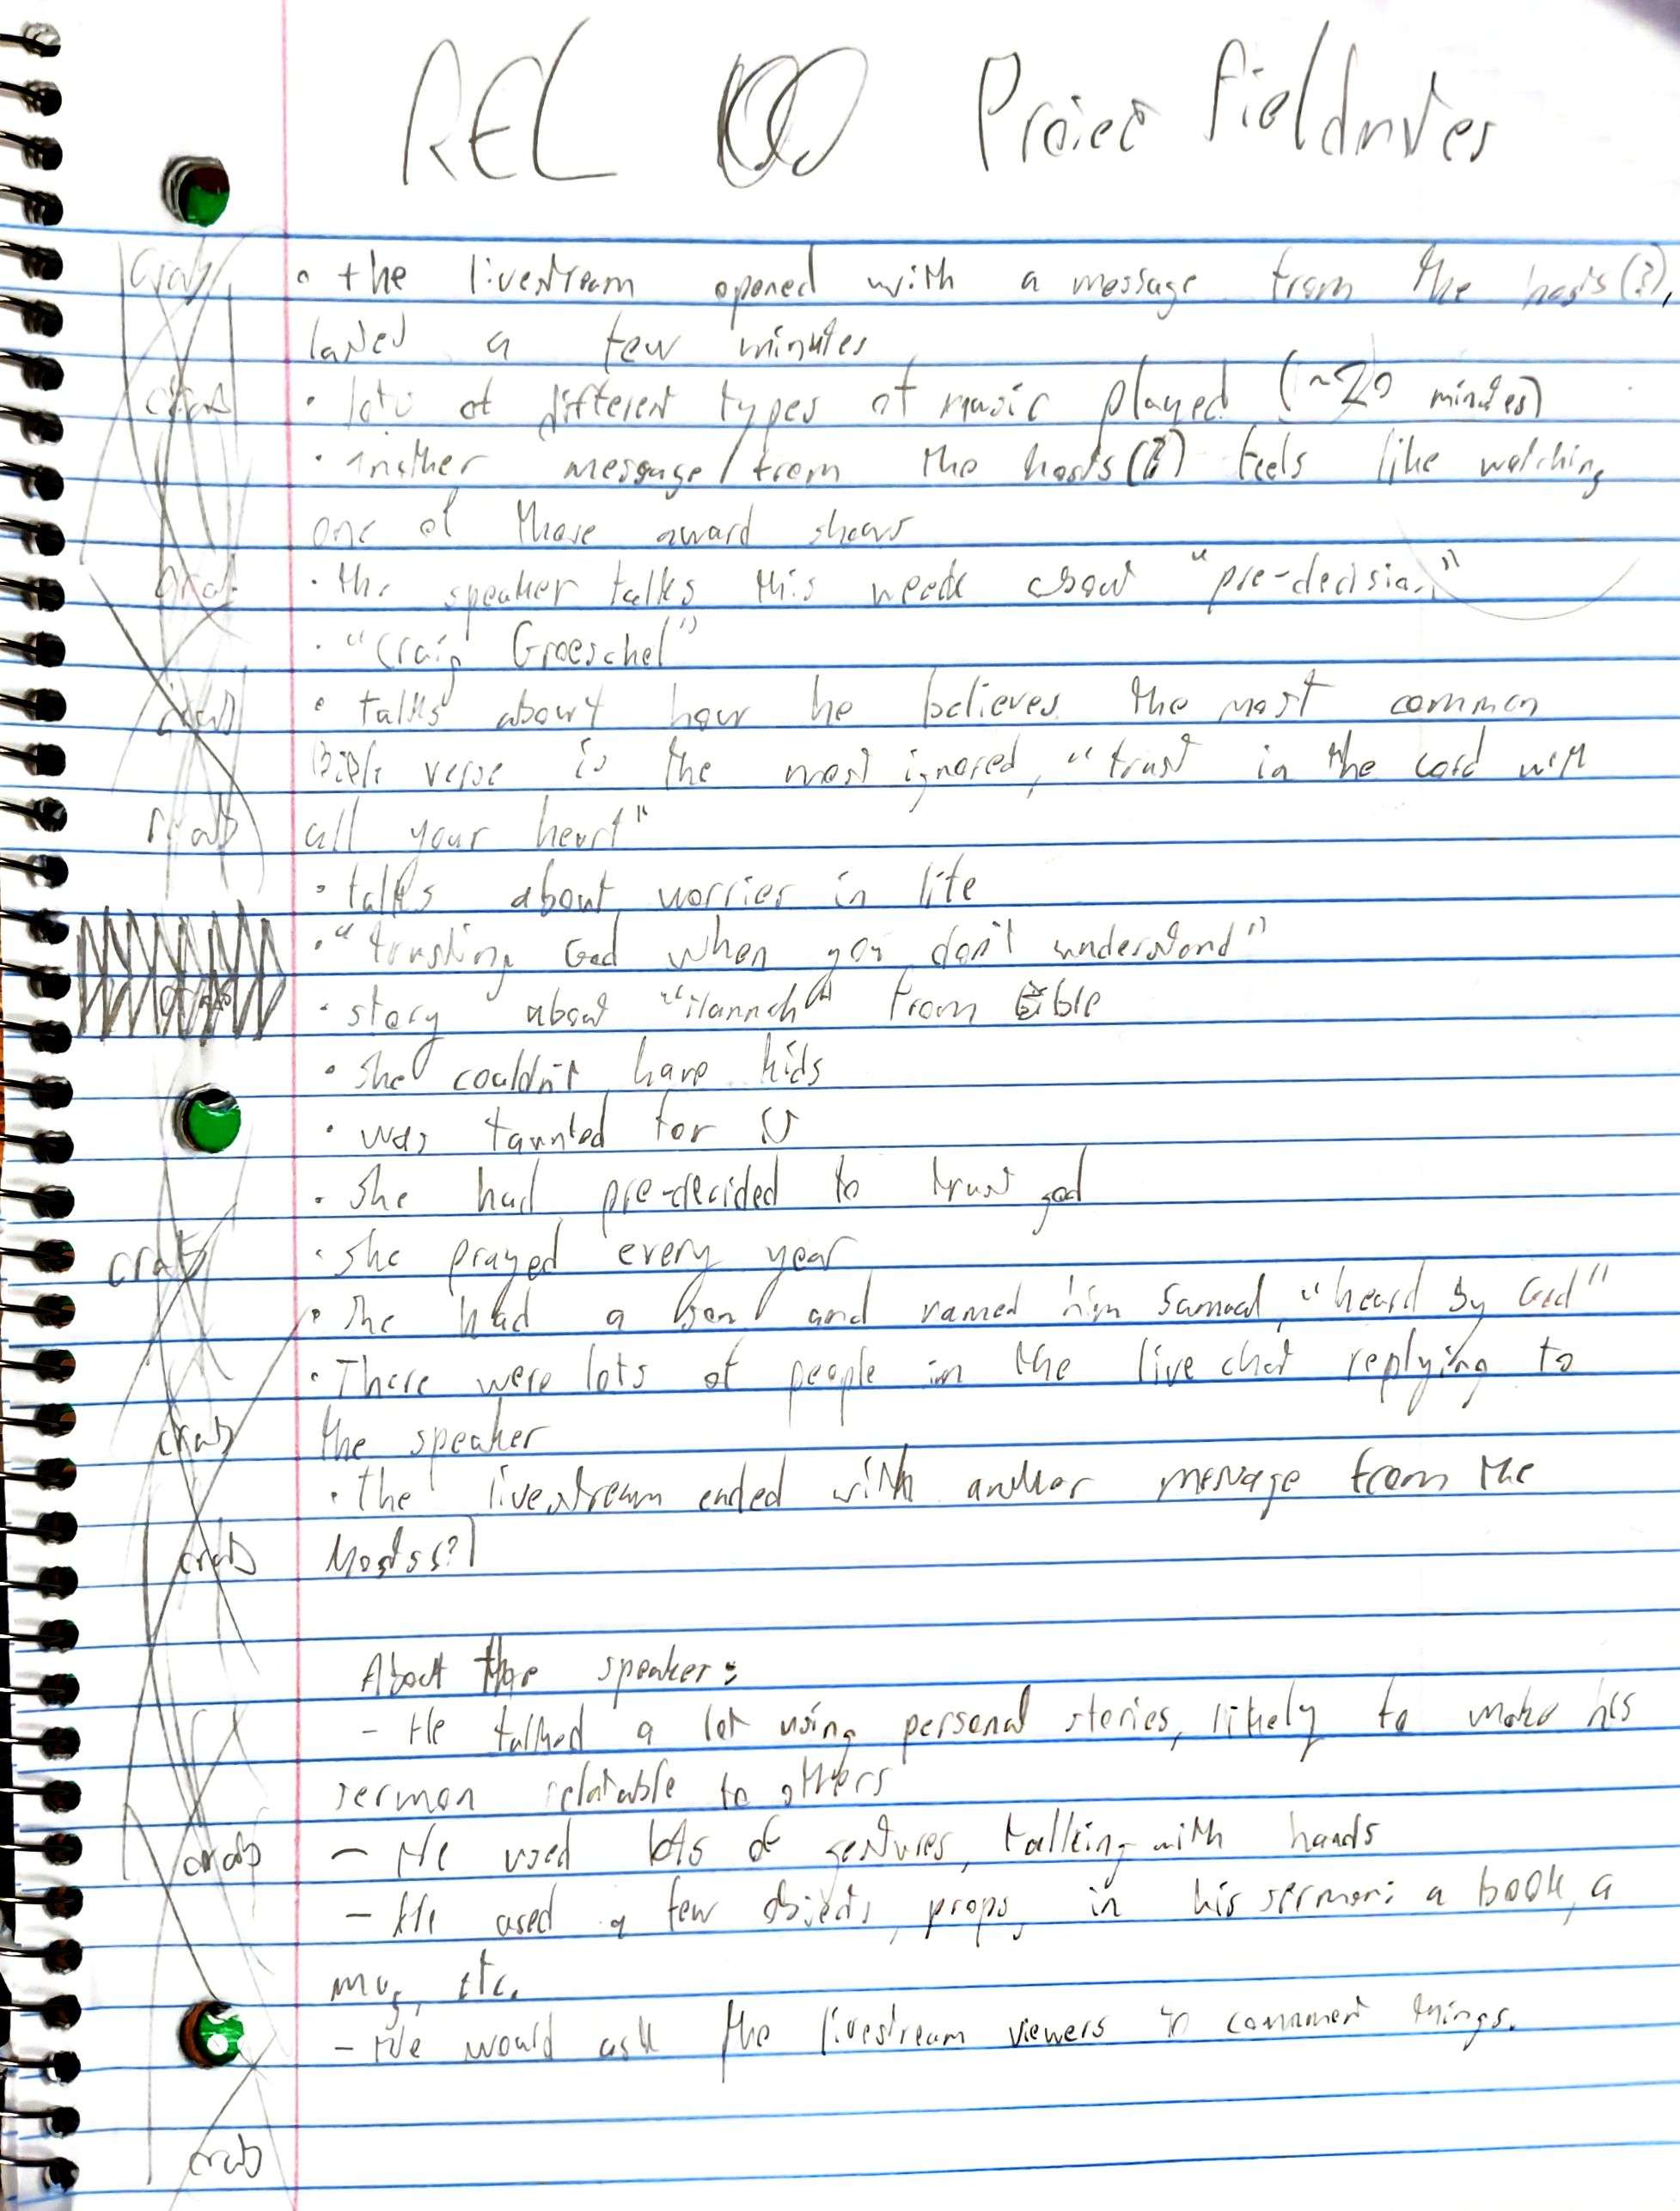 REL 100 Project fieldnotes
crab • the livestream opened with a message from the hosts(?),
lasted a few minutes
crab • lots of different types of music played (~20 minutes)
• another message from the hosts(?) feels like watching
one of those award shows
crab • the speaker talks this week about "pre-decision"
• "Craig Groeschel"
crab • talks about how he believes the most common
Bible verse is the most ignored, "trust in the Lord with
crab all your heart"
• talks about worries in life
• "trusting God when you don't understand"
crab • story about "Hannah" from Bible
• she couldn't have kids
• was taunted for it
• she had pre-decided to trust god
crab • she prayed every year
• she had a son and named him Samual, "heard by God"
• There were lots of people in the live chat replying to
crab the speaker
• The livestream ended with another message from the
crab hosts(?)
About the speaker:
- He talked a lot using personal stories, likely to make his
sermon relatable to others
crab - He used lots of gestures, talking with hands
- He used a few objects, props, in his sermon: a book, a
mug, etc.
- He would ask the livestream viewers to comment things.
crab